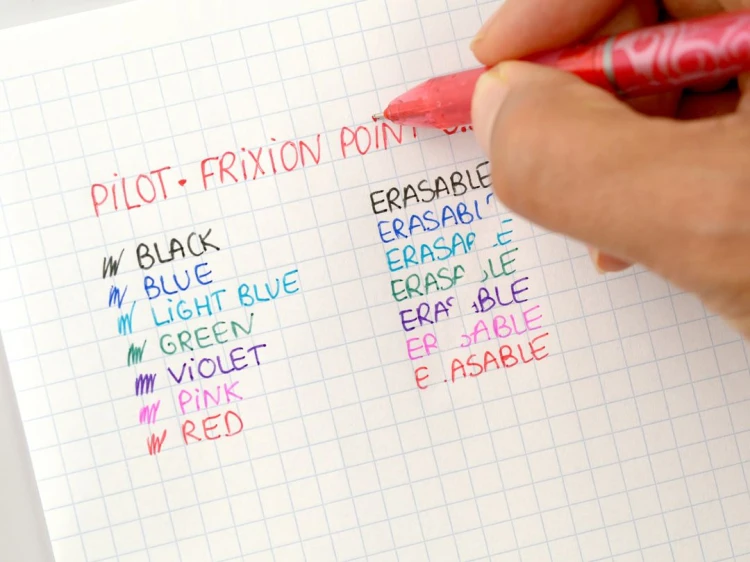 PiLOT • FRiXiON POiNT
BLACK
BLUE
LiGHT BLUE
GREEN
ViOLET
PiNK
RED
ERASABLE
ERASABL
ERASAB LE
ERASA LE
ERA ABLE
ER SABLE
E ASABLE